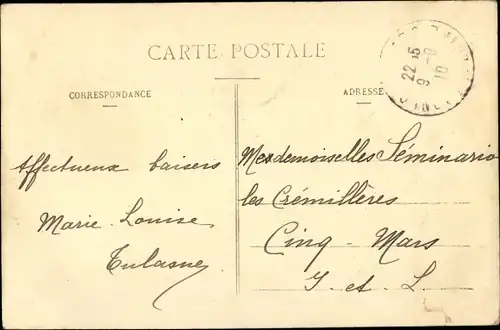 CARTE POSTALE
CORRESPONDANCE
ADRESSE
22 15
9 -8
10
Affectueux baisers
Marie-Louise
Tulasne
Mesdemoiselles Séminario
les Crémillères
Cinq-Mars
I. et L.